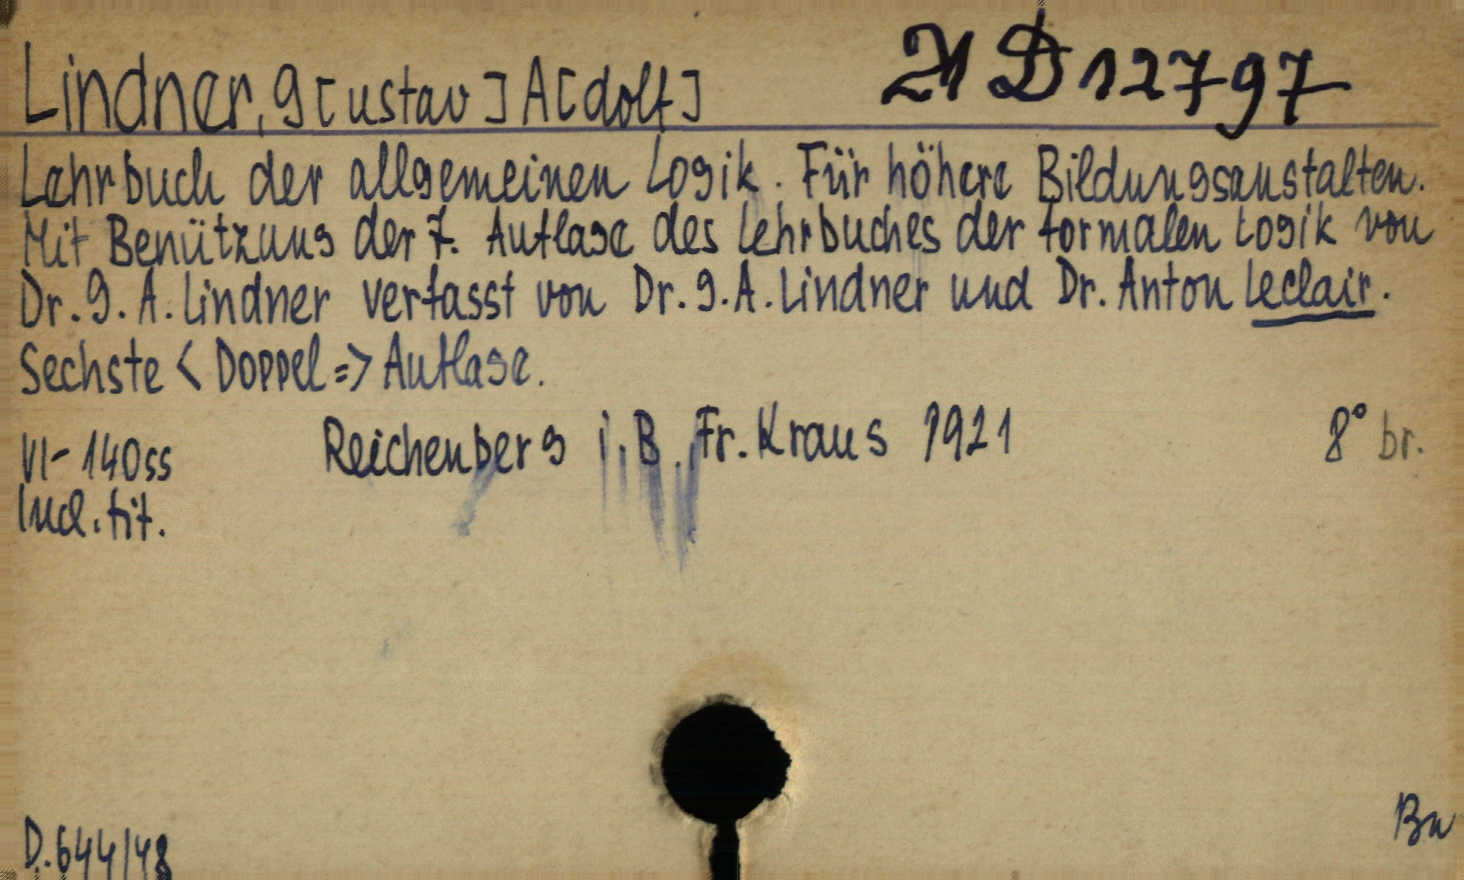 Lindner, G[ustav] A[dolf]
21 D 12797
Lehrbuch der allgemeinen Logik. Für höhere Bildungsanstalten.
Mit Benützung der 7. Auflage des Lehrbuches der formalen Logik von
Dr. G. A. Lindner verfasst von Dr. G. A. Lindner und Dr. Anton Leclair.
Sechste <Doppel=> Auflage.
VI-140ss Reichenberg i. B. Fr. Kraus 1921 8° br.
Incl. tit.
D. 644/48
Bu